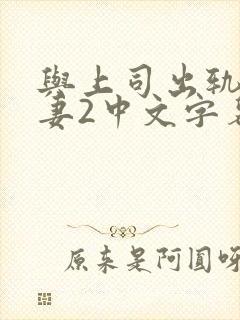 與上司出軌
妻2中文字幕
原來是阿圓呀